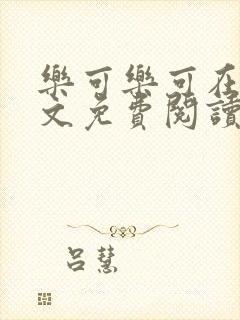 樂可樂可在
文免費閱讀
呂慧